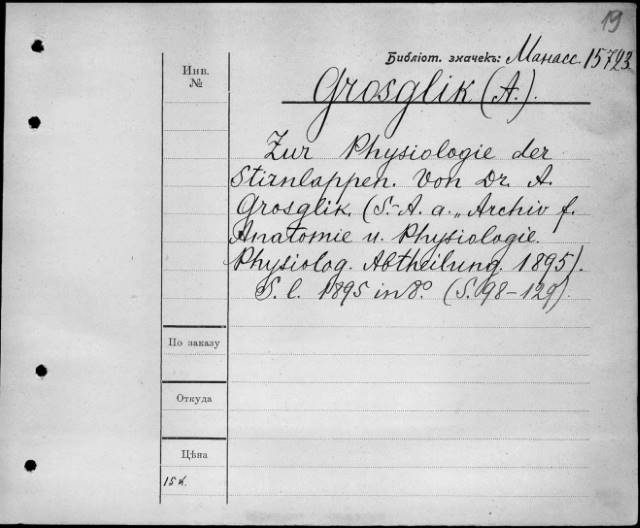 19
Библіот. значекъ: Манасс 15723.
Инв.
№
Grosglik (A.).
Zur Physiologie der
Stirnlappen. Von Dr. A.
Grosglik. (S.-A. a. „Archiv f.
Anatomie u. Physiologie.
Physiolog. Abtheilung. 1895).
S. l. 1895 in 8º. (S. 98–129).
По заказу
Откуда
Цѣна
15к.